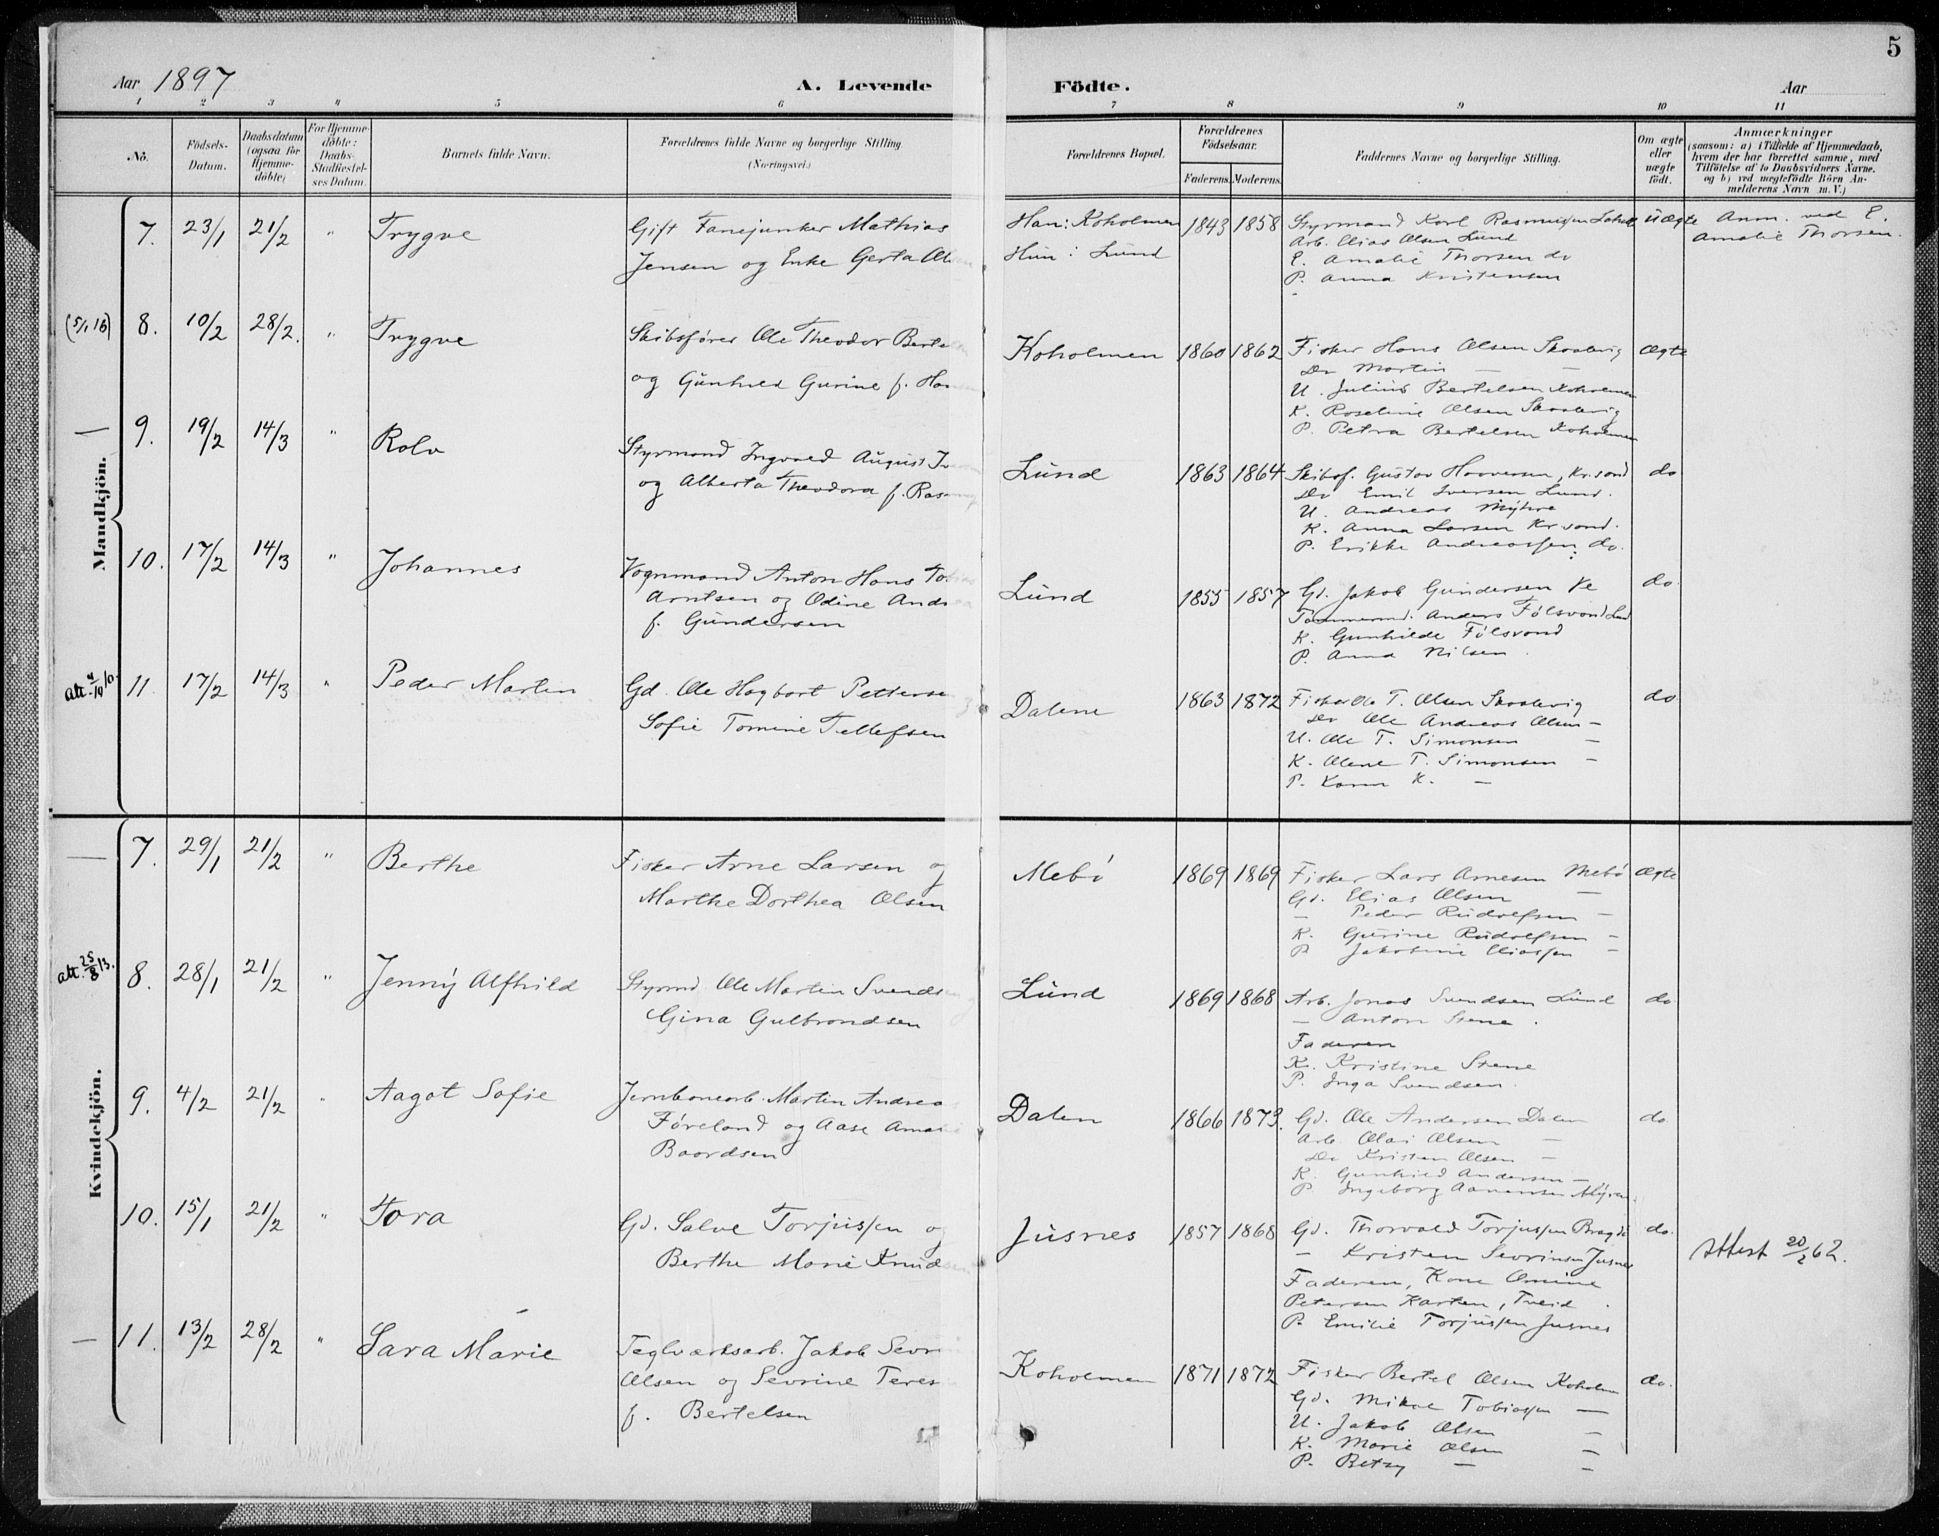 5
Aar 1897
A. Levende Födte.
Aar
1 2 3 4 5 6 7 8 9 10 11
No.
Födsels-Datum.
Daabsdatum (ogsaa for Hjemmedöbte)
For Hjemmedöbte: Daabs-Stadfæstelses Datum.
Barnets fulde Navn.
Forældrenes fulde Navne og borgerlige Stilling (Næringsvei)
Forældrenes Bopæl.
Forældrenes Födselsaar.
Faderens. Moderens.
Faddernes Navne og borgerlige Stilling.
Om ægte eller uægte födt.
Anmærkninger
(saasom: a) i Tilfælde af Hjemmedaab, hvem der har forrettet samme, med Tilföielse af to Daabsvidners Navne. og b) ved uægtefödte Börn Anmelderens Navn m. V.)
Mandkjön.
7. 23/1 21/2 " Trygve
Gift Fanejunker Mathias
Jensen og Enke Gerta
Han: Koholmen
Hun: Lund
1843 1858
Styrmand Karl Rasmussen
Arb. Elias Olsen Lund
E. Amalie Thorsen do
P. Anna Kristensen
Uægte
Anm. ved E.
Amalie Thorsen.
(5/1 16) 8. 10/2 28/2. " Trygve
Skibsfører Ole Theodor
og Gunhild Gurine f.
Koholmen 1860 1862
Fisker Hans Olsen Skaalevig
Do Martin —
U. Julius Bertelsen Koholmen
K. Roseline Olsen Skaalevig
P. Petra Bertelsen Koholmen
Ægte
— 9. 19/2 14/3 " Rolv
Styrmand Ingvald August
og Alberta Theodora f.
Lund 1863 1864
Skibsf. Gustav Haaversen, Kr.sand
Do Emil Iversen Lund.
U. Andreas Myhre
K. Anna Larsen Kr sand.
P. Erikke Andreassen do.
do
10. 17/2 14/3 " Johannes
Vognmand Anton Hans
Arntsen og Odine
f. Gundersen
Lund 1855 1857
Gd. Jakob Gundersen Ve
Tømmermd. Anders Fölsvand
K. Gunhilde Fölsvand
P. Anna Nilsen.
do
Att. 4/10 10. 11. 17/2 14/3 " Peder Martin
Gd. Ole Hagbart
Sofie Tomine Tellefsen
Dalene 1863 1872
Fisker Ole T. Olsen Skaalevig
Do Ole Andreas Olsen —
U. Ole T. Simonsen —
K. Olene T. Simonsen —
P. Karen K. —
do
Kvindekjön.
— 7. 29/1 21/2 " Berthe
Fisker Arne Larsen og
Marthe Dorthea Olsen
Mebö 1869 1869
Fisker Lars Arnesen Mebö
Gd. Elias Olsen —
— Peder Rudolfsen —
K. Gurine Rudolfsen —
P. Jakobine Eliassen —
Ægte
att. 25/8 13. 8. 28/1 21/2 " Jenny Alfhild
Styrmd Ole Martin
Gina Gulbrandsen
Lund 1869 1868
Arb. Jonas Svendsen Lund
— Anton Stene.
Faderen
K. Kristine Stene
P. Inga Svendsen.
do
9. 4/2 21/2 " Aagot Sofie
Jernbanearb. Martin Andreas
Føreland og Aase
Baardsen
Dalen 1866 1873.
Gd. Ole Andersen Dalen
Arb. Olai Olsen —
Do Kristen Olsen —
K. Gunhild Andersen —
P. Ingeborg Aanensen
do
10. 15/1 21/2 " Tora
Gd. Salve Torjussen og
Berthe Marie
Jusnes 1857 1868
Gd. Thorvald Torjussen
— Kristen Sevrinsen Jusnes
Faderen, Kone Omine
Petersen Karten, Tveid.
P. Emilie Torjussen Jusnes
do.
Attest 20/2 62.
— 11. 13/2 28/2 " Sara Marie
Teglværksarb. Jakob
Olsen og Sevrine
f. Bertelsen
Koholmen 1871 1872
Fisker Bertel Olsen Koholm
Gd. Mikal Tobiassen —
U. Jakob Olsen —
K. Marie Olsen —
P. Betzy — —
do.